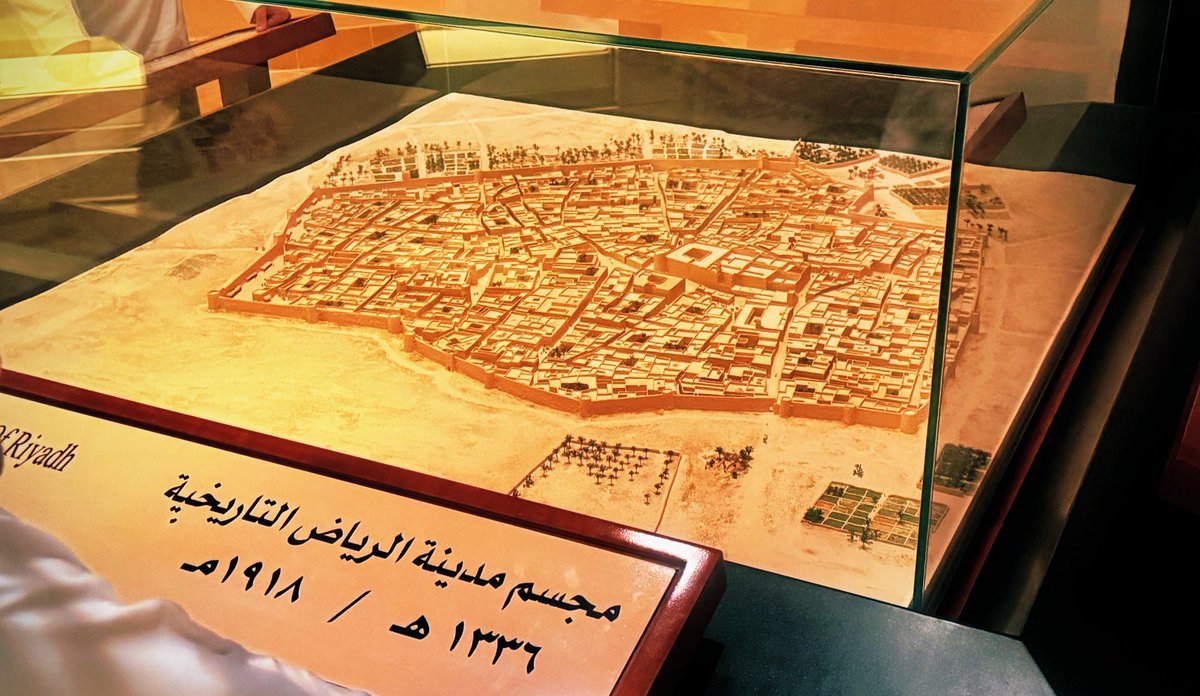 of Riyadh
مجسم مدينة الرياض التاريخية
١٣٣٦ هـ / ١٩١٨مـ